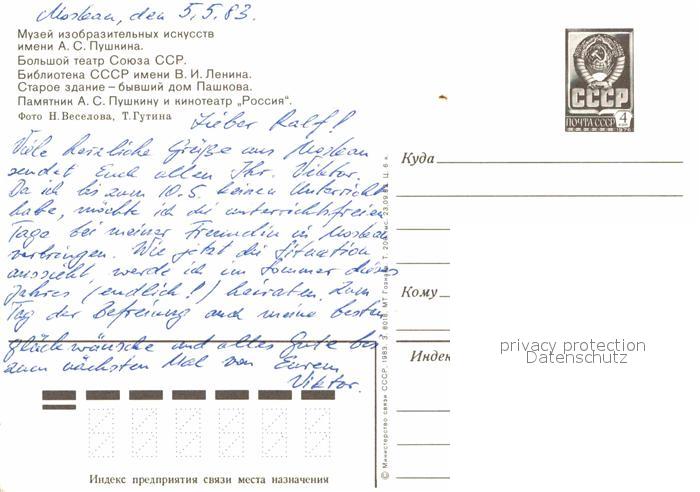 Moskau, den 5.5.83.
Музей изобразительных искусств
имени А. С. Пушкина.
Большой театр Союза ССР.
Библиотека СССР имени В. И. Ленина.
Старое здание – бывший дом Пашкова.
Памятник А. С. Пушкину и кинотеатр „Россия“.
Фото Н. Веселова, Т. Гутина
Lieber Ralf!
Viele herzliche Grüße aus Moskau
sendet Euch allen Ihr. Viktor.
Da ich bis zum 10.5. keinen Unterricht
habe, möchte ich die unterrichtsfreien
Tage bei meiner Freundin in Moskau
verbringen. Wie jetzt die Situation
aussieht, werde ich im Sommer dieses
Jahres (endlich!) heiraten. Zum
Tag der Befreiung auch meine besten
Glückwünsche und alles Gute bis
zum nächsten Mal von Eurem
Viktor.
Индекс предприятия связи места назначения
© Министерство связи СССР, 1983. З. 8018. МТ Гознака.
СССР
ПОЧТА СССР 4
Куда
Кому
Индек
privacy protection
Datenschutz